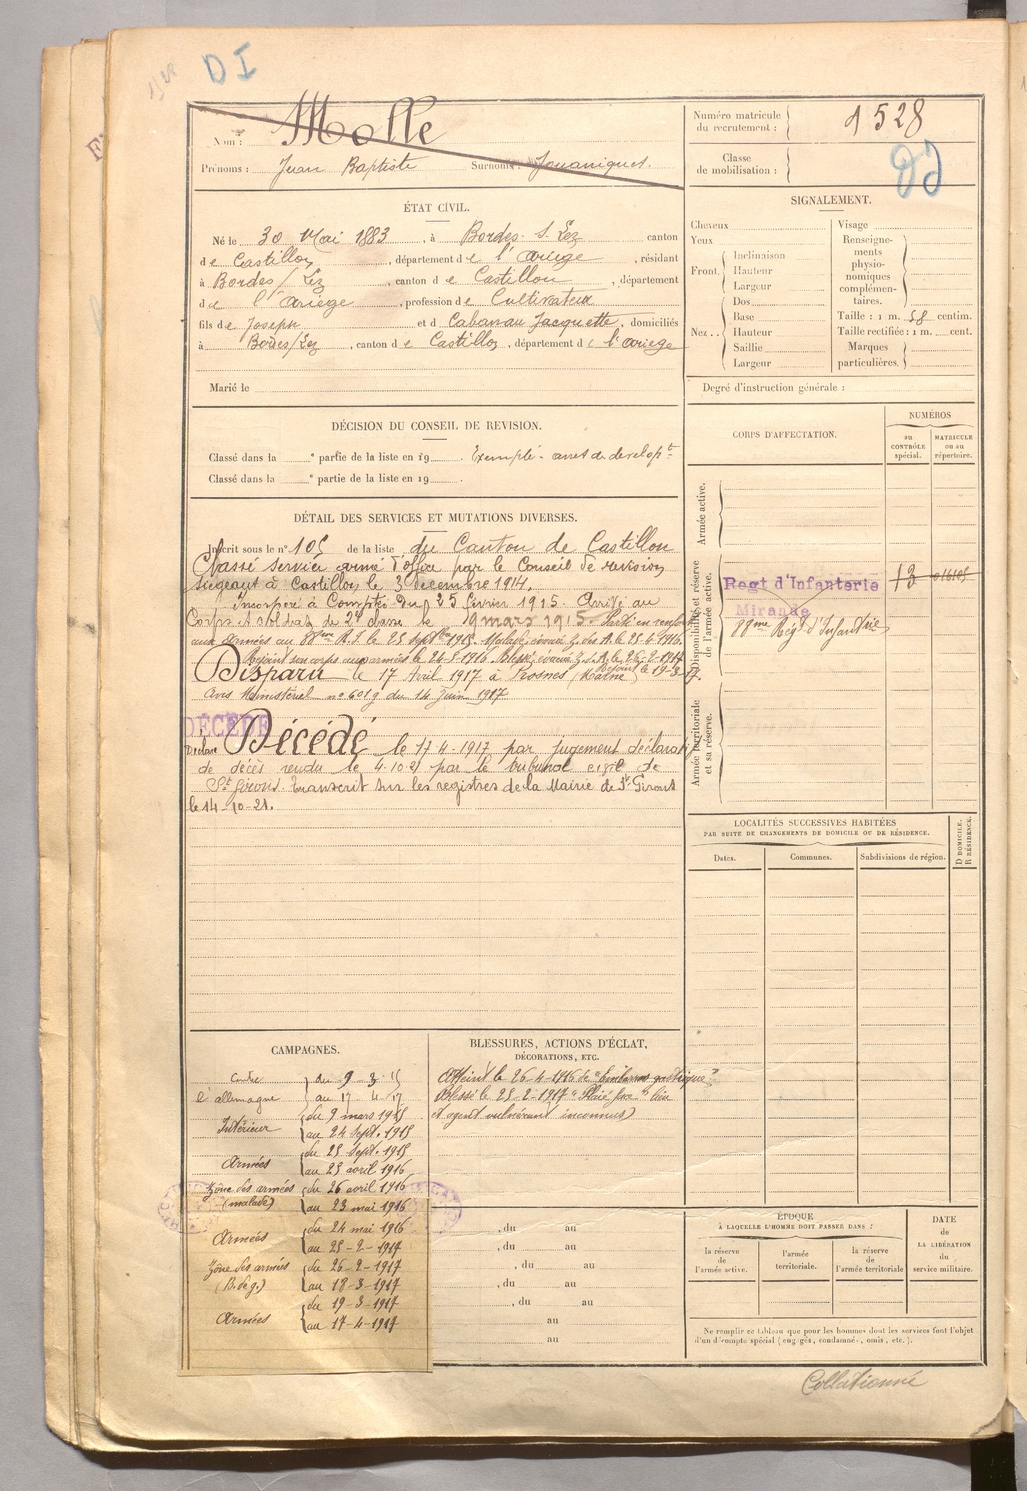 DI
Nom : Molle
Prénoms : Jean Baptiste Surnoms : Jouaniquet.
Numéro matricule du recrutement : 1528
Classe de mobilisation :
ÉTAT CIVIL.
Né le 30 Mai 1883, à Bordes. S. Lez canton
de Castillon, département de l'Ariège, résidant
à Bordes/Lez, canton de Castillon, département
de l'Ariege, profession de Cultivateur
fils de Joseph et d Cabanau Jacquette, domiciliés
à Bordes/Lez, canton de Castillon, département de l'Ariege
Marié le
SIGNALEMENT.
Cheveux
Yeux
Front. Inclinaison
Hauteur
Largeur
Nez.. Dos
Base
Hauteur
Saillie
Largeur
Visage
Renseignements physionomiques complémentaires.
Taille : 1 m. 58 centim.
Taille rectifiée : 1 m. cent.
Marques particulières.
Degré d'instruction générale :
DÉCISION DU CONSEIL DE REVISION.
Classé dans la e partie de la liste en 19 . Exempté - arret de developt
Classé dans la e partie de la liste en 19 .
CORPS D'AFFECTATION.
NUMÉROS
au CONTRÔLE spécial.
MATRICULE ou au répertoire.
Armée active.
Disponibilité et réserve de l'armée active.
Regt d'Infanterie
Mirande
88me Régt d'Infantrie
Armée territoriale et sa réserve.
DÉTAIL DES SERVICES ET MUTATIONS DIVERSES.
Inscrit sous le n° 105 de la liste du Canton de Castillon
Classé service armé d'office par le Conseil de revision
siégeant à Castillon le 3 décembre 1914.
Incorporé à Compter du 25 février 1915. Arrivé au
Corps et soldat de 2e classe le 9 mars 1915. Parti en renfort
aux armées au 88me R.I. le 25 septbre 1915. Malade, évacué Z. des A. le 25.4.1916.
Rejoint son corps aux armées le 24-5-1916. Blessé, évacué Z. d. A. le 26-2-1917
Rejoint le 19-3-17.
Disparu le 17 Avril 1917 à Prosnes (Marne)
Avis Ministériel n° 601g du 14 Juin 1917
DÉCÉDÉ
Déclaré Décédé le 17-4-1917 par jugement déclaratif
de décès rendu le 4.10.21 par le tribunal civil de
St Girons. Transcrit sur les registres de la Mairie de St Girons
le 14-10-21.
LOCALITÉS SUCCESSIVES HABITÉES
PAR SUITE DE CHANGEMENTS DE DOMICILE OU DE RÉSIDENCE.
Dates.
Communes.
Subdivisions de région.
D DOMICILE.
R RÉSIDENCE.
CAMPAGNES.
Contre du 9-3-15
l'allemagne au 17-4-17
Intérieur du 9 mars 1915
au 24 Sept. 1915
Armées du 25 Sept. 1915
au 25 avril 1916
Zône des armées du 26 avril 1916
(malade) au 23 mai 1916
Armées du 24 mai 1916
au 25-2-1917
Zône des armées du 26-2-1917
(B. de g.) au 18-3-1917
Armées du 19-3-1917
au 17-4-1917
BLESSURES, ACTIONS D'ÉCLAT,
DÉCORATIONS, ETC.
Atteint le 26-4-1916 de "Embarras gastrique".
Blessé le 25-2-1917 "Plaie
et agent vulnérant inconnus)
, du au
, du au
, du au
, du au
, du au
au
au
ÉPOQUE
À LAQUELLE L'HOMME DOIT PASSER DANS :
la réserve de l'armée active.
l'armée territoriale.
la réserve de l'armée territoriale
DATE de LA LIBÉRATION du service militaire.
Ne remplir ce tableau que pour les hommes dont les services font l'objet
d'un décompte spécial (engagés, condamnés, omis, etc.).
Collationné